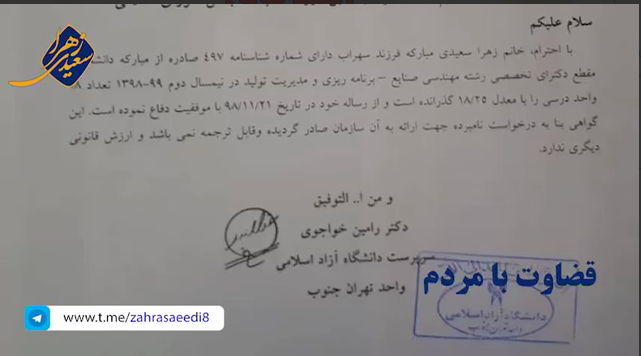 سلام علیکم
با احترام، خانم زهرا سعیدی مبارکه فرزند سهراب دارای شماره شناسنامه ۴۹۷ صادره از مبارکه
مقطع دکترای تخصصی رشته مهندسی صنایع - برنامه ریزی و مدیریت تولید در نیمسال دوم ۹۹-۱۳۹۸ تعداد
واحد درسی را با معدل ۱۸/۲۵ گذرانده است و از رساله خود در تاریخ ۹۸/۱۱/۲۱ با موفقیت دفاع نموده است. این
گواهی بنا به درخواست نامبرده جهت ارائه به آن سازمان صادر گردیده وقابل ترجمه نمی باشد و ارزش قانونی
دیگری ندارد.
و من ا.. التوفیق
دکتر رامین خواجوی
سرپرست دانشگاه آزاد اسلامی
واحد تهران جنوب
قضاوت با مردم
دانشگاه آزاد اسلامی
واحد تهران جنوب
www.t.me/zahrasaeedi8
زهرا
سعیدی